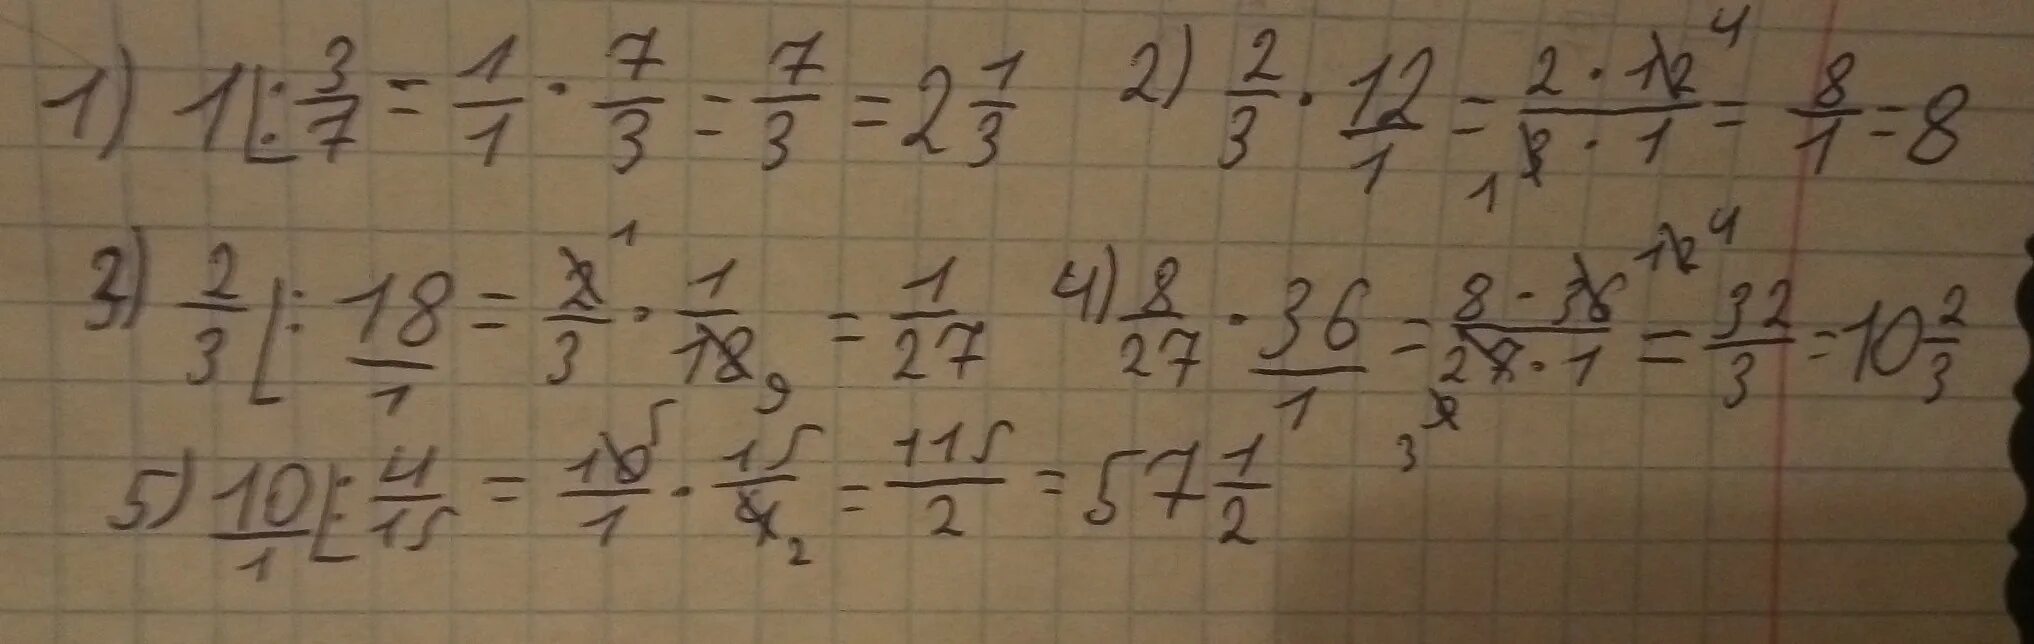 1) 1 : 3/7 = 1/1 · 7/3 = 7/3 = 2 1/3 2) 2/3 · 12/1 = 2 · 12 4 / 1 3 · 1 = 8/1 = 8
3) 2/3 : 18/1 = 2 1 / 3 · 1/18 9 = 1/27 4) 8/27 · 36/1 = 8 · 36 12 4 / 27 · 1 9 3 = 32/3 = 10 2/3
5) 10/1 : 4/15 = 10 5 / 1 · 15/4 2 = 115/2 = 57 1/2